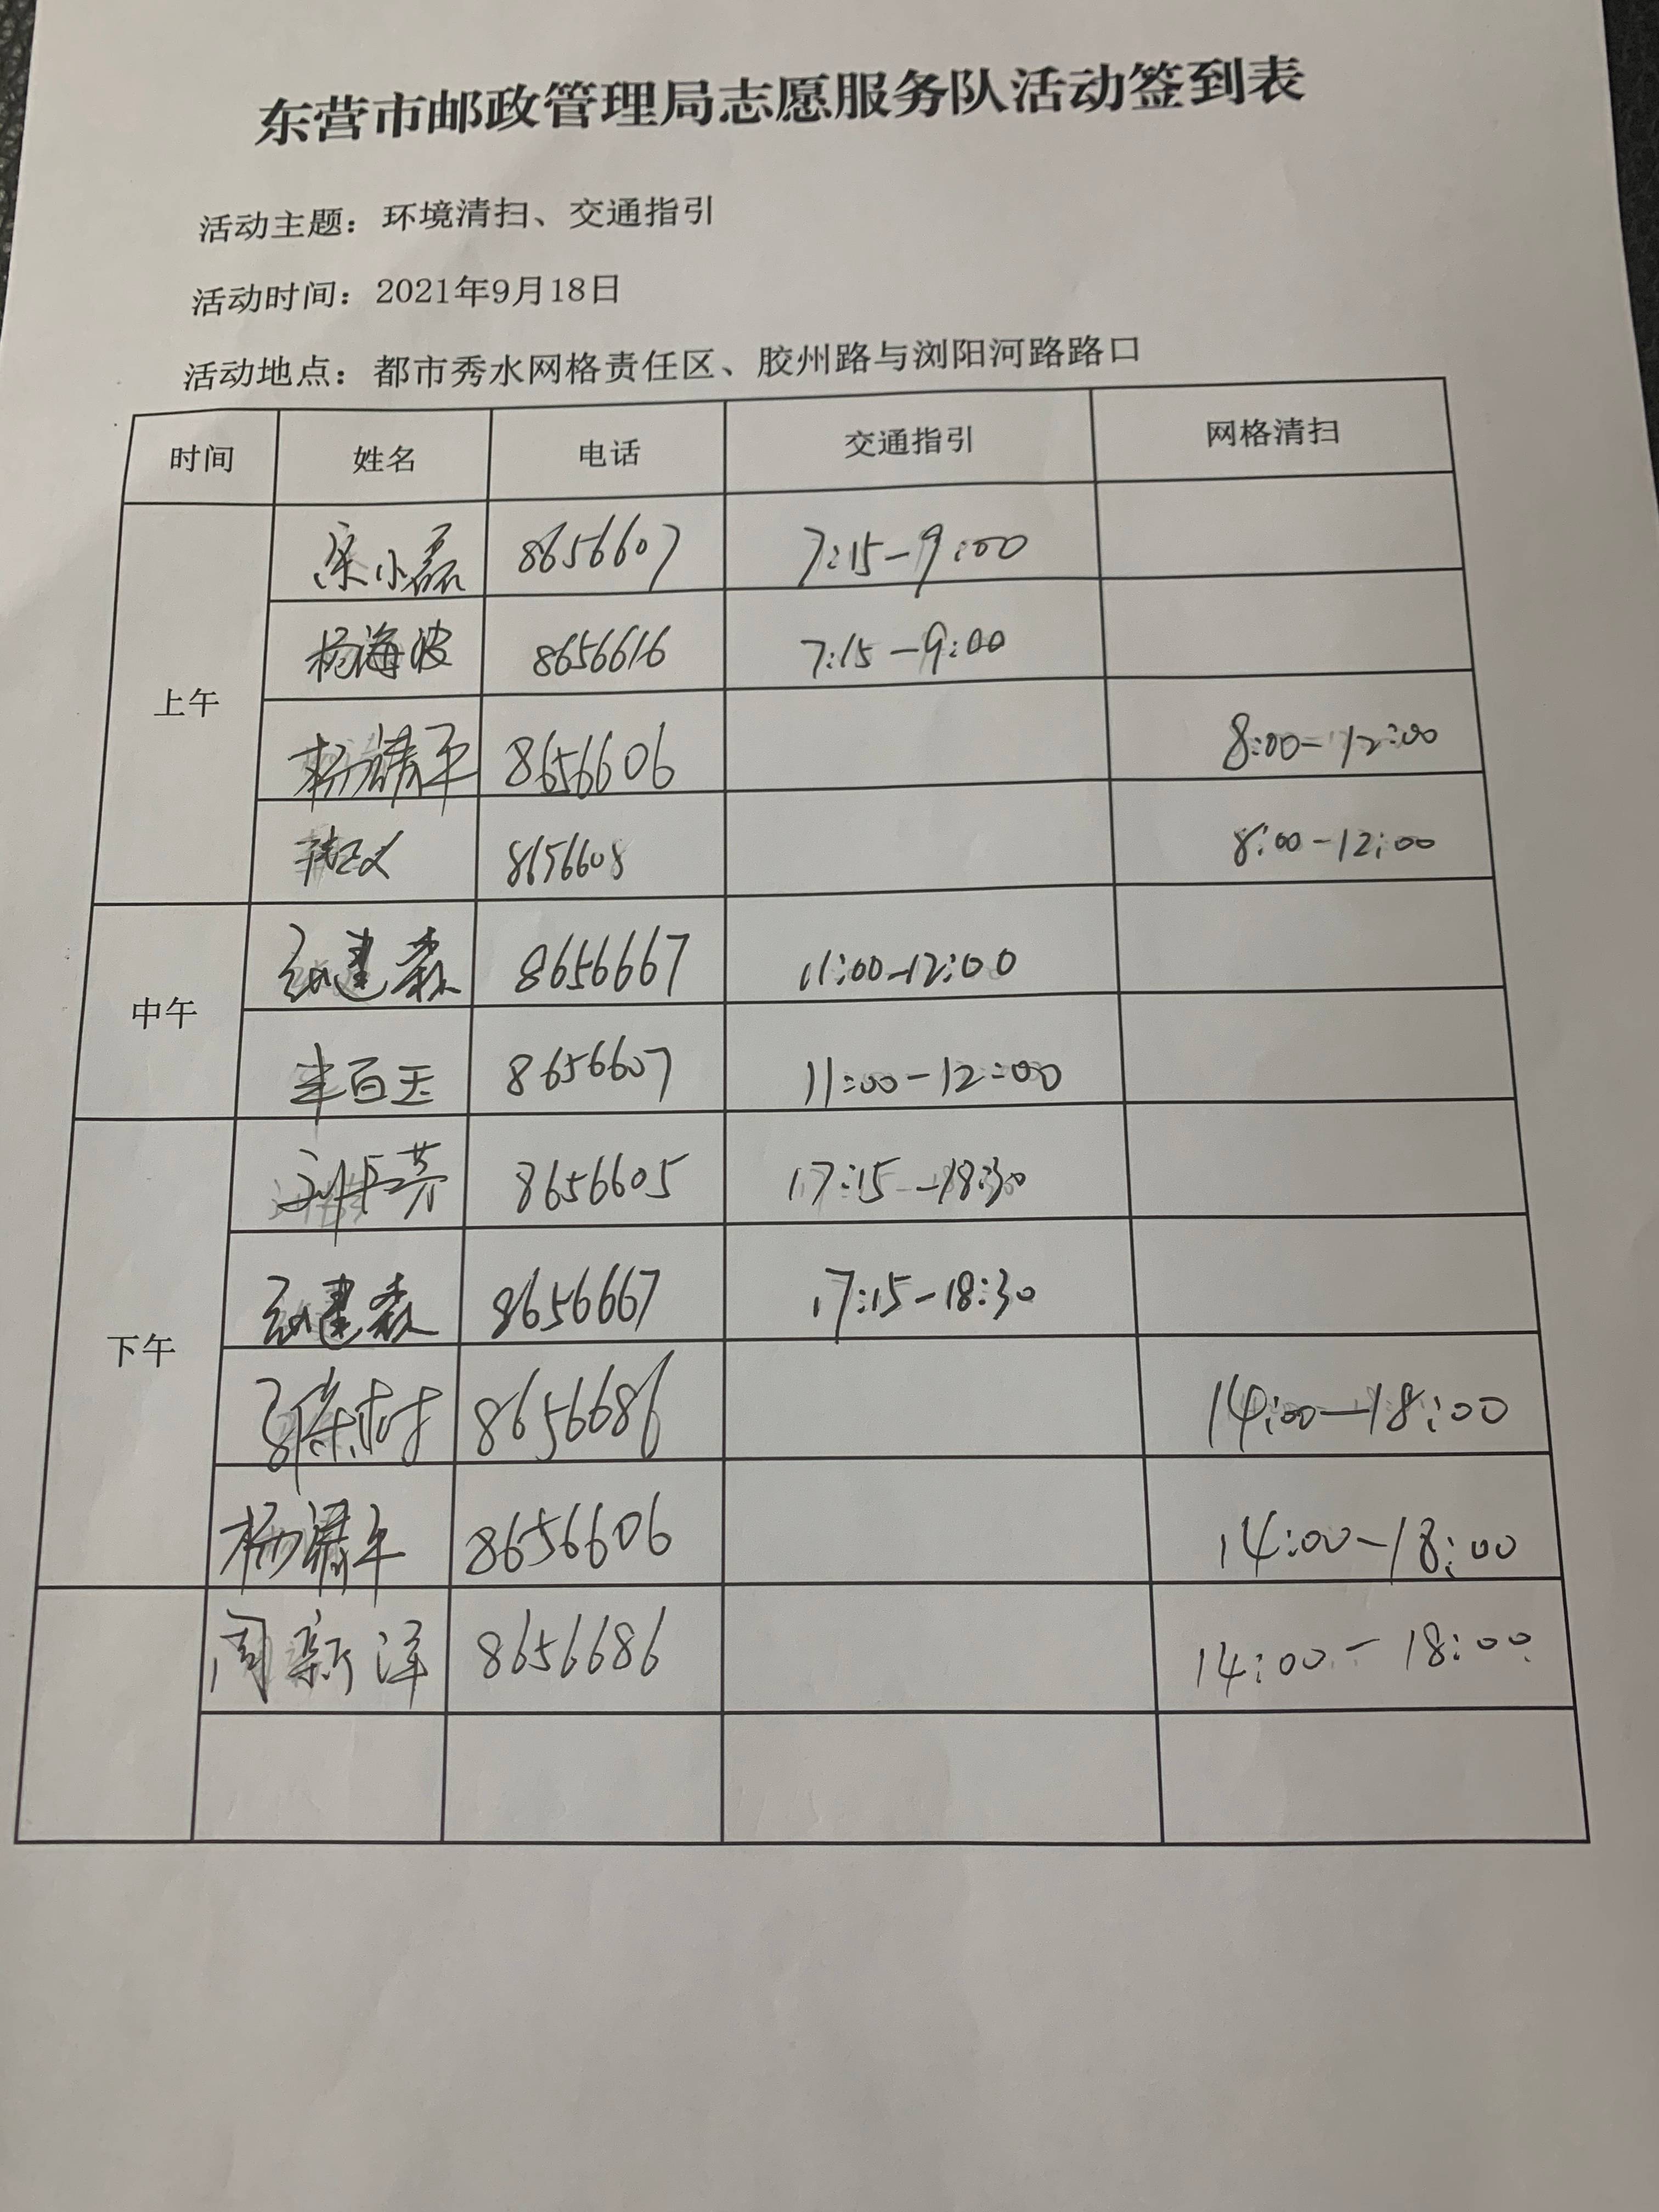 东营市邮政管理局志愿服务队活动签到表
活动主题：环境清扫、交通指引
活动时间：2021年9月18日
活动地点：都市秀水网格责任区、胶州路与浏阳河路路口
时间 姓名 电话 交通指引 网格清扫
上午
宋小磊 8656607 7:15-9:00
杨海波 8656616 7:15-9:00
杨清平 8656606 8:00-12:00
8656608 8:00-12:00
中午
建森 8656667 11:00-12:00
百玉 8656607 11:00-12:00
下午
刘 8656605 17:15-18:30
建森 8656667 17:15-18:30
8656686 14:00-18:00
杨清平 8656606 14:00-18:00
周新洋 8656686 14:00-18:00